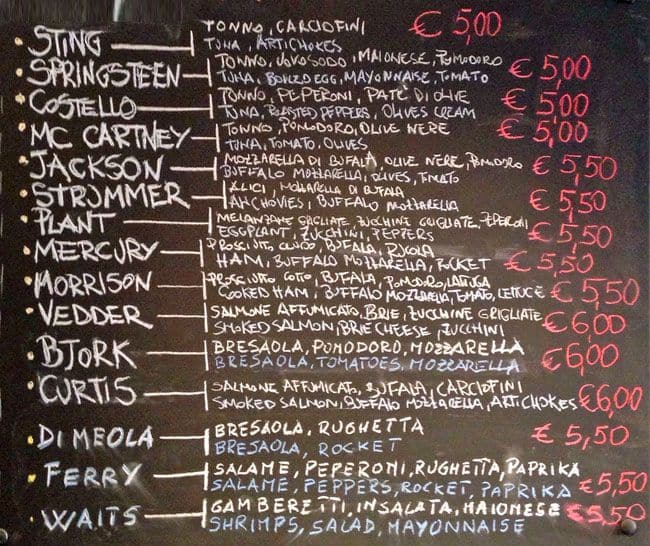 STING
TONNO, CARCIOFINI
€ 5,00
TUNA, ARTICHOKES
SPRINGSTEEN
TONNO, UOVO SODO, MAIONESE, POMODORO
€ 5,00
TUNA, BOILED EGG, MAYONNAISE, TOMATO
COSTELLO
TONNO, PEPERONI, PATÈ DI OLIVE
€ 5,00
TUNA, ROASTED PEPPERS, OLIVES CREAM
MC CARTNEY
TONNO, POMODORO, OLIVE NERE
€ 5,00
TUNA, TOMATO, OLIVES
JACKSON
MOZZARELLA DI BUFALA, OLIVE NERE, POMODORO
€ 5,50
BUFFALO MOZZARELLA, OLIVES, TOMATO
STRUMMER
ALICI, MOZZARELLA DI BUFALA
€ 5,50
ANCHOVIES, BUFFALO MOZZARELLA
PLANT
MELANZANE GRIGLIATE, ZUCCHINE GRIGLIATE, PEPERONI
€ 5,50
EGGPLANT, ZUCCHINI, PEPPERS
MERCURY
PROSCIUTTO CRUDO, BUFALA, RUCOLA
€ 5,50
HAM, BUFFALO MOZZARELLA, ROCKET
MORRISON
PROSCIUTTO COTTO, BUFALA, POMODORO, LATTUGA
€ 5,50
COOKED HAM, BUFFALO MOZZARELLA, TOMATO, LETTUCE
VEDDER
SALMONE AFFUMICATO, BRIE, ZUCCHINE GRIGLIATE
€ 6,00
SMOKED SALMON, BRIE CHEESE, ZUCCHINI
BJORK
BRESAOLA, POMODORO, MOZZARELLA
€ 6,00
BRESAOLA, TOMATOES, MOZZARELLA
CURTIS
SALMONE AFFUMICATO, BUFALA, CARCIOFINI
€ 6,00
SMOKED SALMON, BUFFALO MOZZARELLA, ARTICHOKES
DI MEOLA
BRESAOLA, RUGHETTA
€ 5,50
BRESAOLA, ROCKET
FERRY
SALAME, PEPERONI, RUGHETTA, PAPRIKA
€ 5,50
SALAME, PEPPERS, ROCKET, PAPRIKA
WAITS
GAMBERETTI, INSALATA, MAIONESE
€ 5,50
SHRIMPS, SALAD, MAYONNAISE